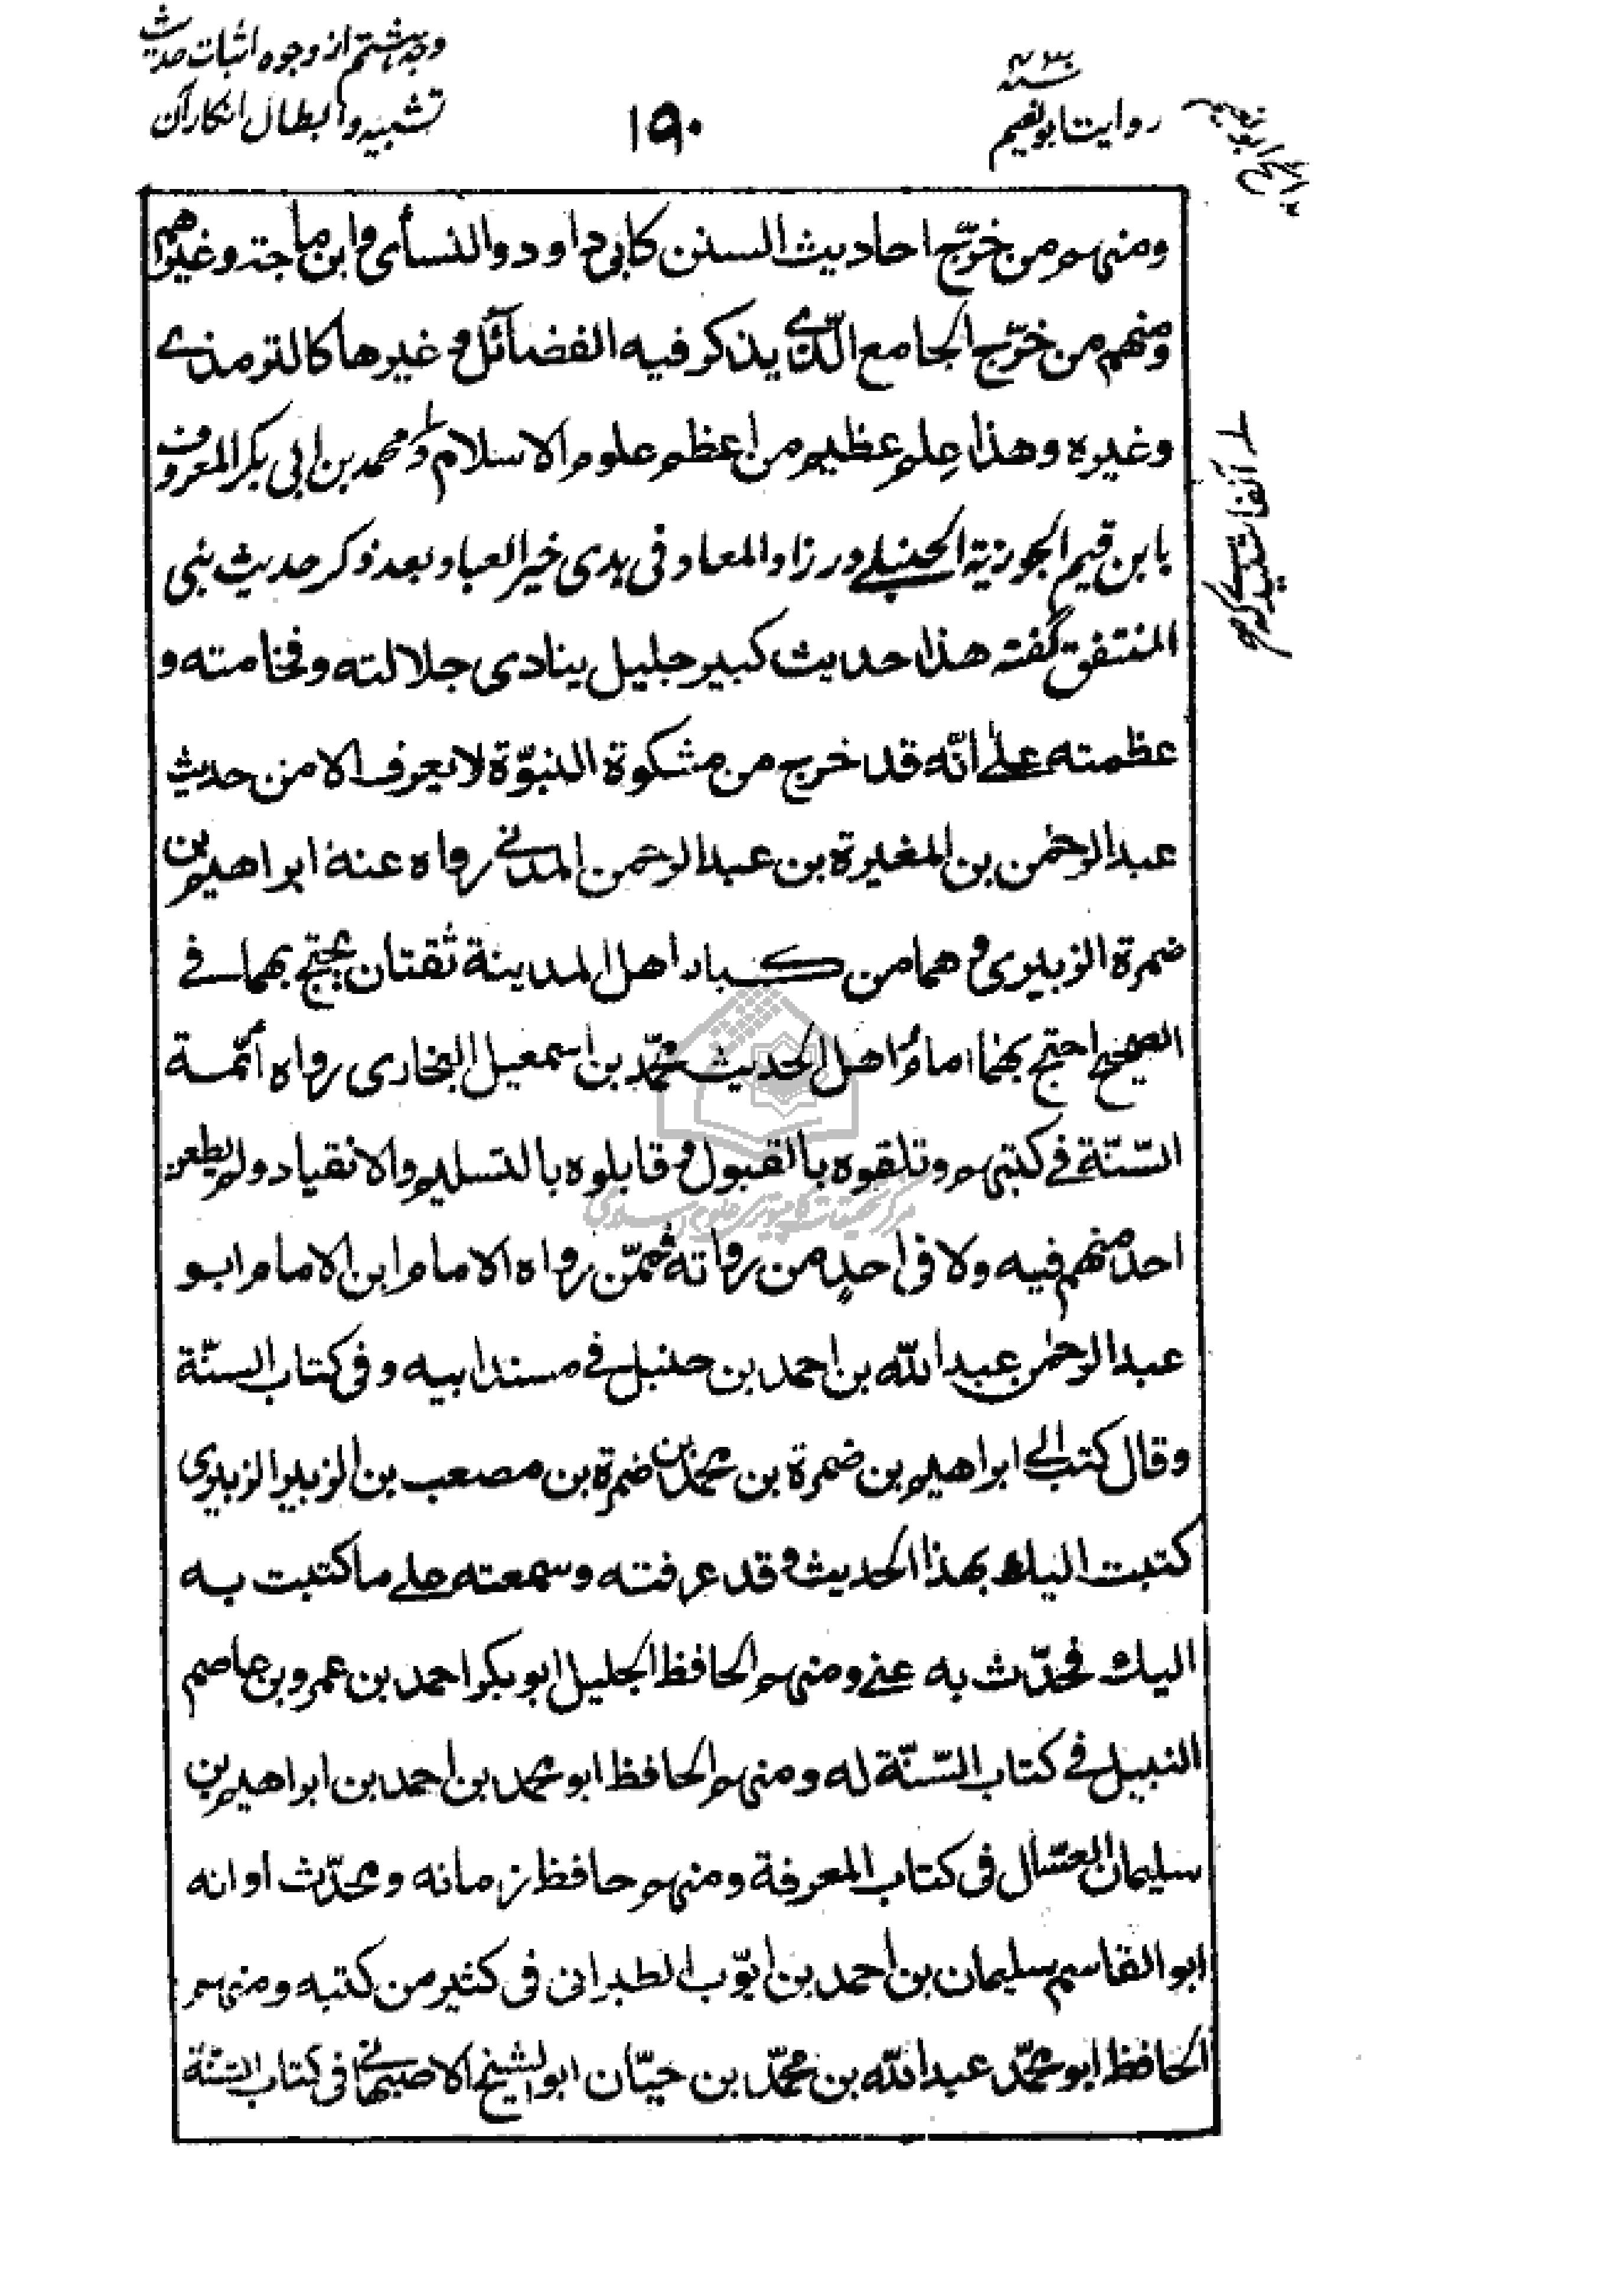 روایت ابو نعیم
۱۹۰
وجه هشتم از وجوه اثبات حدیث
تشبیه و ابطال انکار آن
ومنهم من خرّج احادیث السنن کابی داود والنسائی وابن ماجة وغیرهم
ومنهم من خرّج الجامع الّذی یذکر فیه الفضائل وغیرها کالترمذی
وغیره وهذا علم عظیم من اعظم علوم الاسلام و محمد بن ابی بکر المعروف
بابن قیم الجوزیة الحنبلی در زاد المعاد فی هدی خیر العباد بعد ذکر حدیث بنی
المنتفق گفته هذا حدیث کبیر جلیل ینادی جلالته وفخامته و
عظمته علی انّه قد خرج من مشکوة النبوّة لا یعرف الا من حدیث
عبد الرحمن بن المغیرة بن عبد الرحمن المدنی رواه عنه ابراهیم بن
ضمرة الزبیری وهما من کبار اهل المدینة ثقتان یحتج بهما فی
الصحیح احتج بهما امام اهل الحدیث محمّد بن اسمعیل البخاری رواه ائمة
السّنّة فی کتبهم وتلقوه بالقبول وقابلوه بالتسلیم والانقیاد ولم یطعن
احد منهم فیه ولا فی احدٍ من رواته فممّن رواه الامام ابن الامام ابو
عبد الرحمن عبد الله بن احمد بن حنبل فی مسند ابیه وفی کتاب السنّة
وقال کتب الی ابراهیم بن ضمرة بن محمد بن ضمرة بن مصعب بن الزبیر الزبیری
کتبت الیك بهذا الحدیث وقد عرفته وسمعته علی ما کتبت به
الیك فحدّث به عنی ومنهم الحافظ الجلیل ابو بکر احمد بن عمرو بن عاصم
النبیل فی کتاب السّنّة له ومنهم الحافظ ابو محمد بن احمد بن ابراهیم بن
سلیمان العسّال فی کتاب المعرفة ومنهم حافظ زمانه ومحدّث اوانه
ابو القاسم سلیمان بن احمد بن ایّوب الطبرانی فی کثیر من کتبه ومنهم
الحافظ ابو محمّد عبد الله بن محمّد بن حیّان ابو الشیخ الاصبهانی فی کتاب السّنّة
مرکز تحقیقات کامپیوتری علوم اسلامی